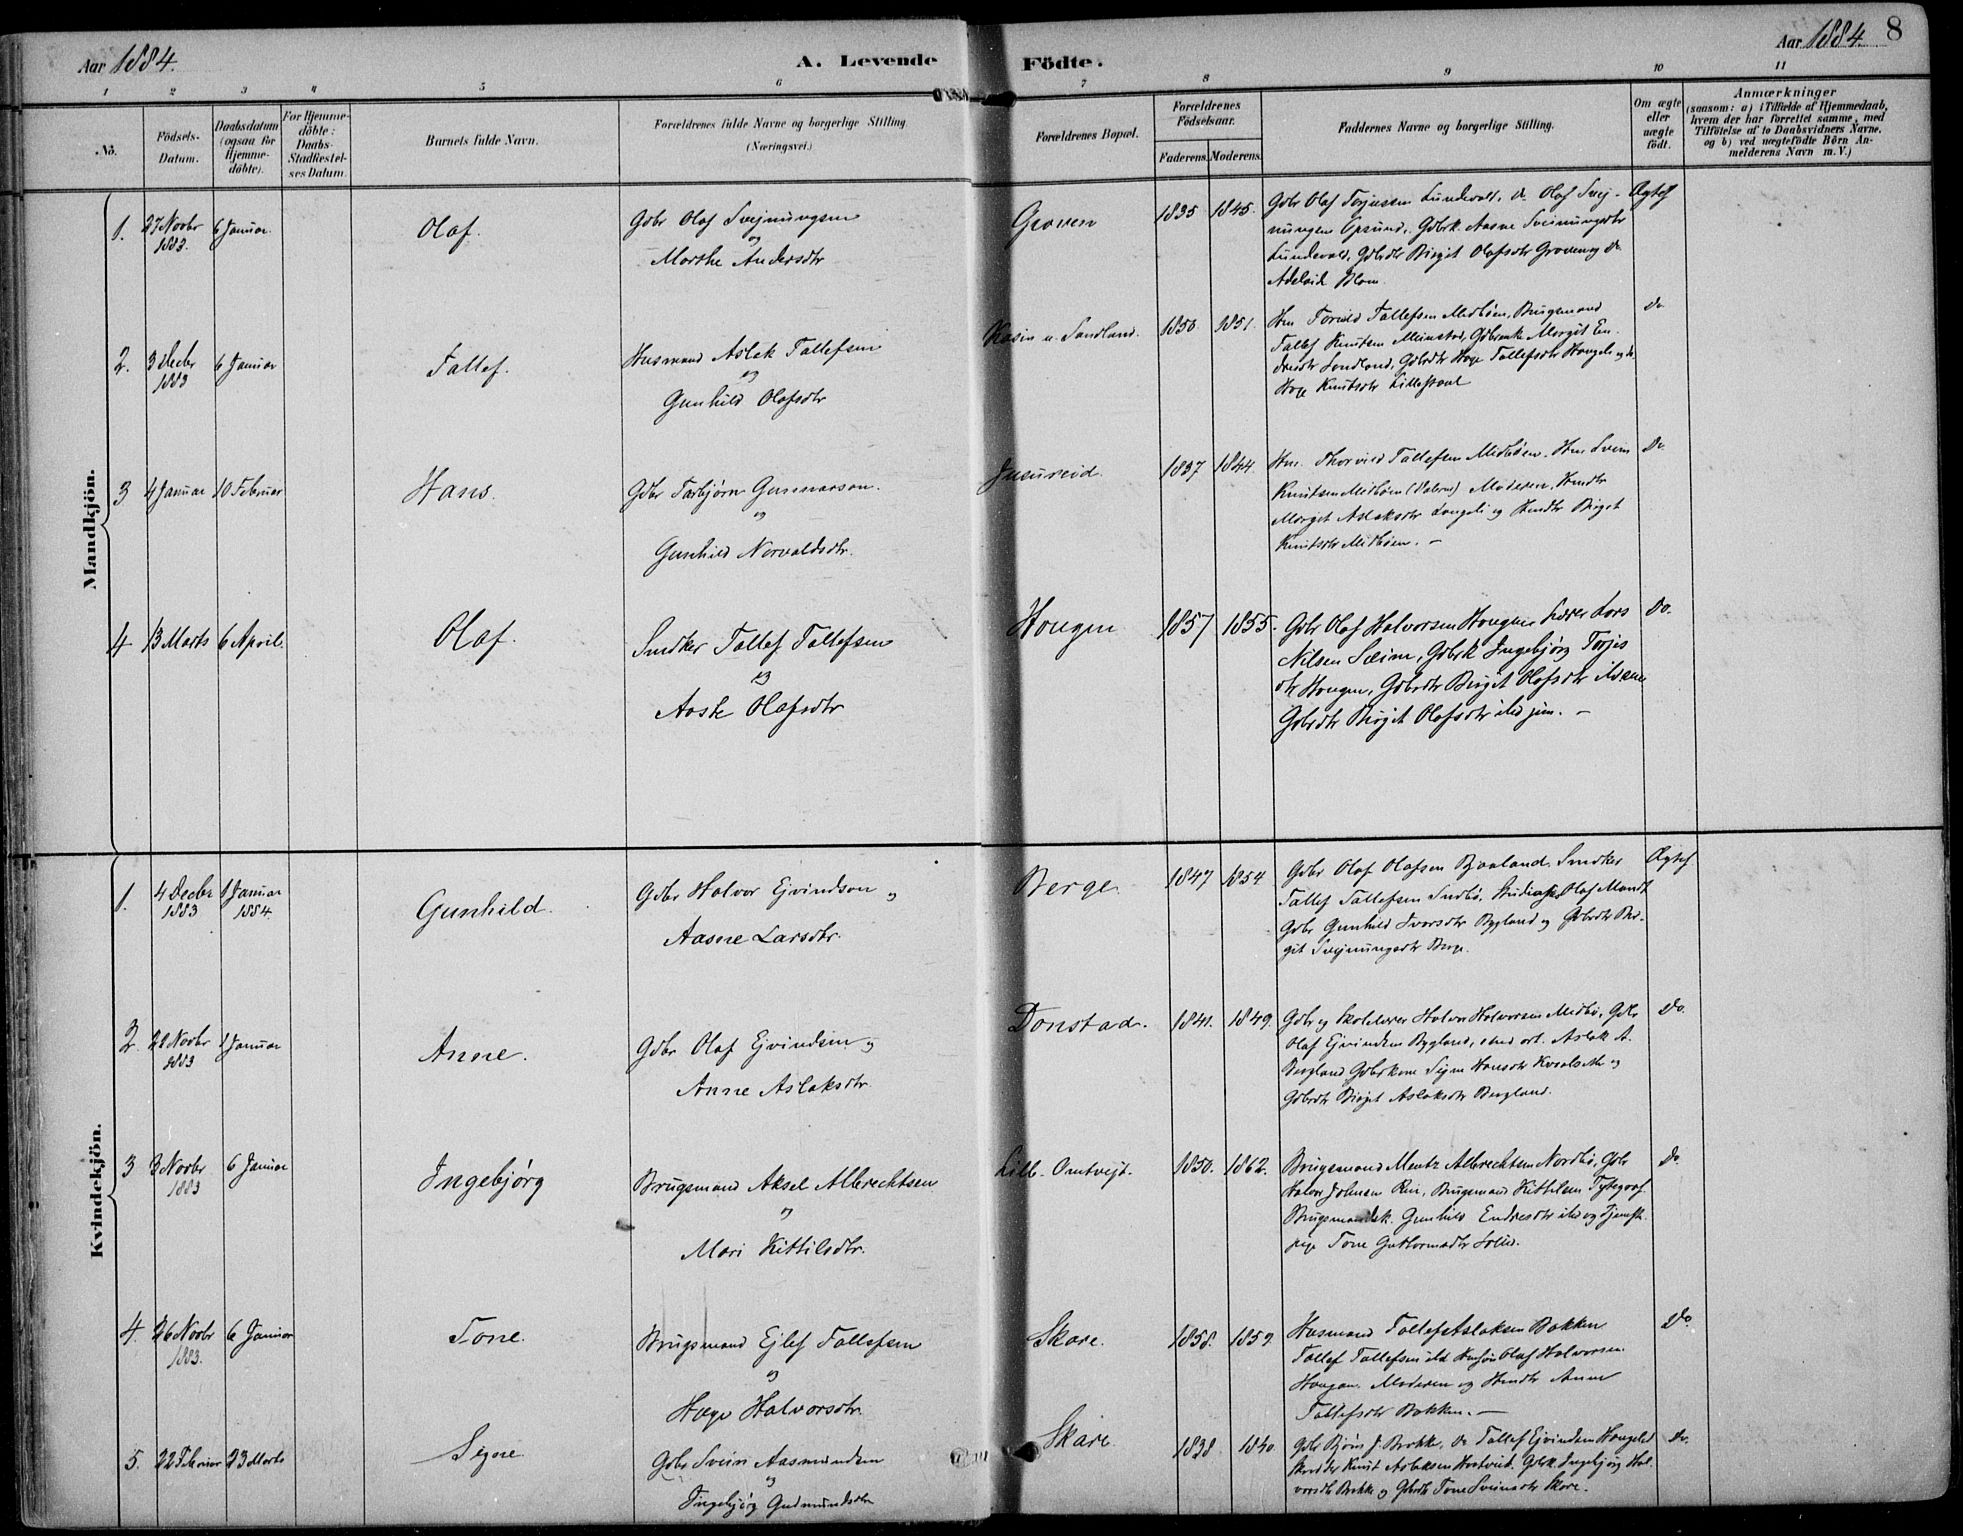 Aar 1884.
A. Levende Födte.
Aar 1884. 8
1 2 3 4 5 6 7 8 9 10 11
No.
Födsels-
Datum.
Daabsdatum
(ogsaa for
Hjemme-
döbte).
For Hjemme-
döbte:
Daabs-
Stadfæstel-
ses Datum.
Barnets fulde Navn.
Forældrenes fulde Navne og borgerlige Stilling
(Næringsvei.)
Forældrenes Bopæl.
Forældrenes
Födselsaar.
Faderens. Moderens.
Faddernes Navne og borgerlige Stilling.
Om ægte
eller
uægte
födt.
Anmærkninger
(saasom: a) i Tilfælde af Hjemmedaab,
hvem der har forrettet samme, med
Tilföielse af to Daabsvidners Navne.
og b) ved uægtefödte Börn An-
melderens Navn m. V.)
Mandkjön.
1. 27 Novbr 1883. 6 Januar. Olaf.
Gdbr Olaf Svejnungsen
og
Marthe Andersdtr
Groven 1835 1845.
Gdbr Olaf Torjussen Lundevald, do Olaf Svej-
nungsen Opsund, Gdbrk. Aasne Sveinungsdtr
Lundevald, Gdbrdtr Birgit Olafsdtr Groven og do
Adelaide Blom.
Ægtef
2. 3 Decbr 1883 6 Januar Tallef.
Husmand Aslak Tallefsen
og
Gunhild Olafsdtr
Kasin u. Sandland. 1850 1851.
Hm Torvild Tallefsen Midbøen, Brugsmand
Tallef Knutsen Meinstad, Gdbrenke Margit En-
dresdtr Sandland, Gdbrdtr Hæge Tallefsdtr Haugeli og do
Hæge Knutsdtr
do
3 4 Januar 10 Februar Hans.
Gdbr Tarbjørn Gunnarson.
og
Gunhild Norvaldsdtr.
Jusureid. 1837 1844.
Hm. Thorvild Tallefsen Midbøen. Hm Svein
Knutsen Midbøen Moderen, Hmdtr
Margit Aslaksdtr Langeli og Hmdtr Birgit
Knutsdtr Midbøen. —
Do.
4 13 Marts 6 April. Olaf.
Snedker Tallef Tallefsen
og
Aaste Olafsdtr
Hougen 1857 1855.
Gdbr Olaf Halvorsen Hougen Lærer Lars
Nilsen Seim, Gdbrk Ingebjørg Torjus
dtr Hougen, Gdbrdtr Birgit Olafsdtr
Gdbrdtr Birgit Olafsdtr —
Do.
Kvindekjön.
1. 4 Decbr 1883 1 Januar 1884. Gunhild.
Gdbr Halvor Ejvindson og
Aasne Larsdtr.
Berge. 1847 1854
Gdbr Olaf Olafsen Bjaaland, Snedker
Tallef Tallefsen Indbø, Olaf Mandt
Gdbr Gunhild Ivarsdtr Bygland og Gdbrdtr Bir-
git Svejnungsdtr Berge.
Ægtef.
2. 28 Novbr 1883 1 Januar Anne.
Gdbr Olaf Ejvindsen og
Anne Aslaksdtr
Donstad. 1841. 1849.
Gdbr og Skolelærer Halvor Halvorsen Midbø, Gdbr
Olaf Ejvindsen Bygland, Aslak A.
Bergland Gdbrkone Signe Hansdtr og
Gdbrdtr Birgit Aslaksdtr Bergland.
Do.
3 3 Novbr 1883 6 Januar Ingebjørg
Brugsmand Aksel Albrechtsen
og
Mari Kittilsdtr.
Lill. Omtvejt. 1850. 1862.
Brugsmand Mentz Albrechtsen Nordbø, Gdbr
Halvor Johnsen Rui, Brugsmand Kittilsen Tytegraf
Brugsmandsk. Gunhild Endresdtr og Tjeneste-
pige Tone Guttormsdtr
Do.
4. 26 Novbr 1883. 6 Januar Tone.
Brugsmand Ejlef Tallefsen
og
Hæge Halvorsdtr.
Skare. 1858. 1859
Husmand Tallef Aslaksen Bakken
Tallef Tallefsen Olaf Halvorsen
Haugan. Moderen og Hmdtr Anne
Tallefsdtr Bakken. —
Do.
5. 22 Februar 23 Marts Signe
Gdbr Svein Aasmundsen
og
Ingebjørg Gudmundsdtr
Skare 1838 1840.
Gdbr Bjørn J. Brokke, do Tallef Ejvindsen Haugeland
Skrædder Knut Aslaksen Hartveit, Gdbrk. Ingebjørg Hal-
vorsdtr Brokke og Gbrdtr Tone Sveinsdtr Skare.
Do.